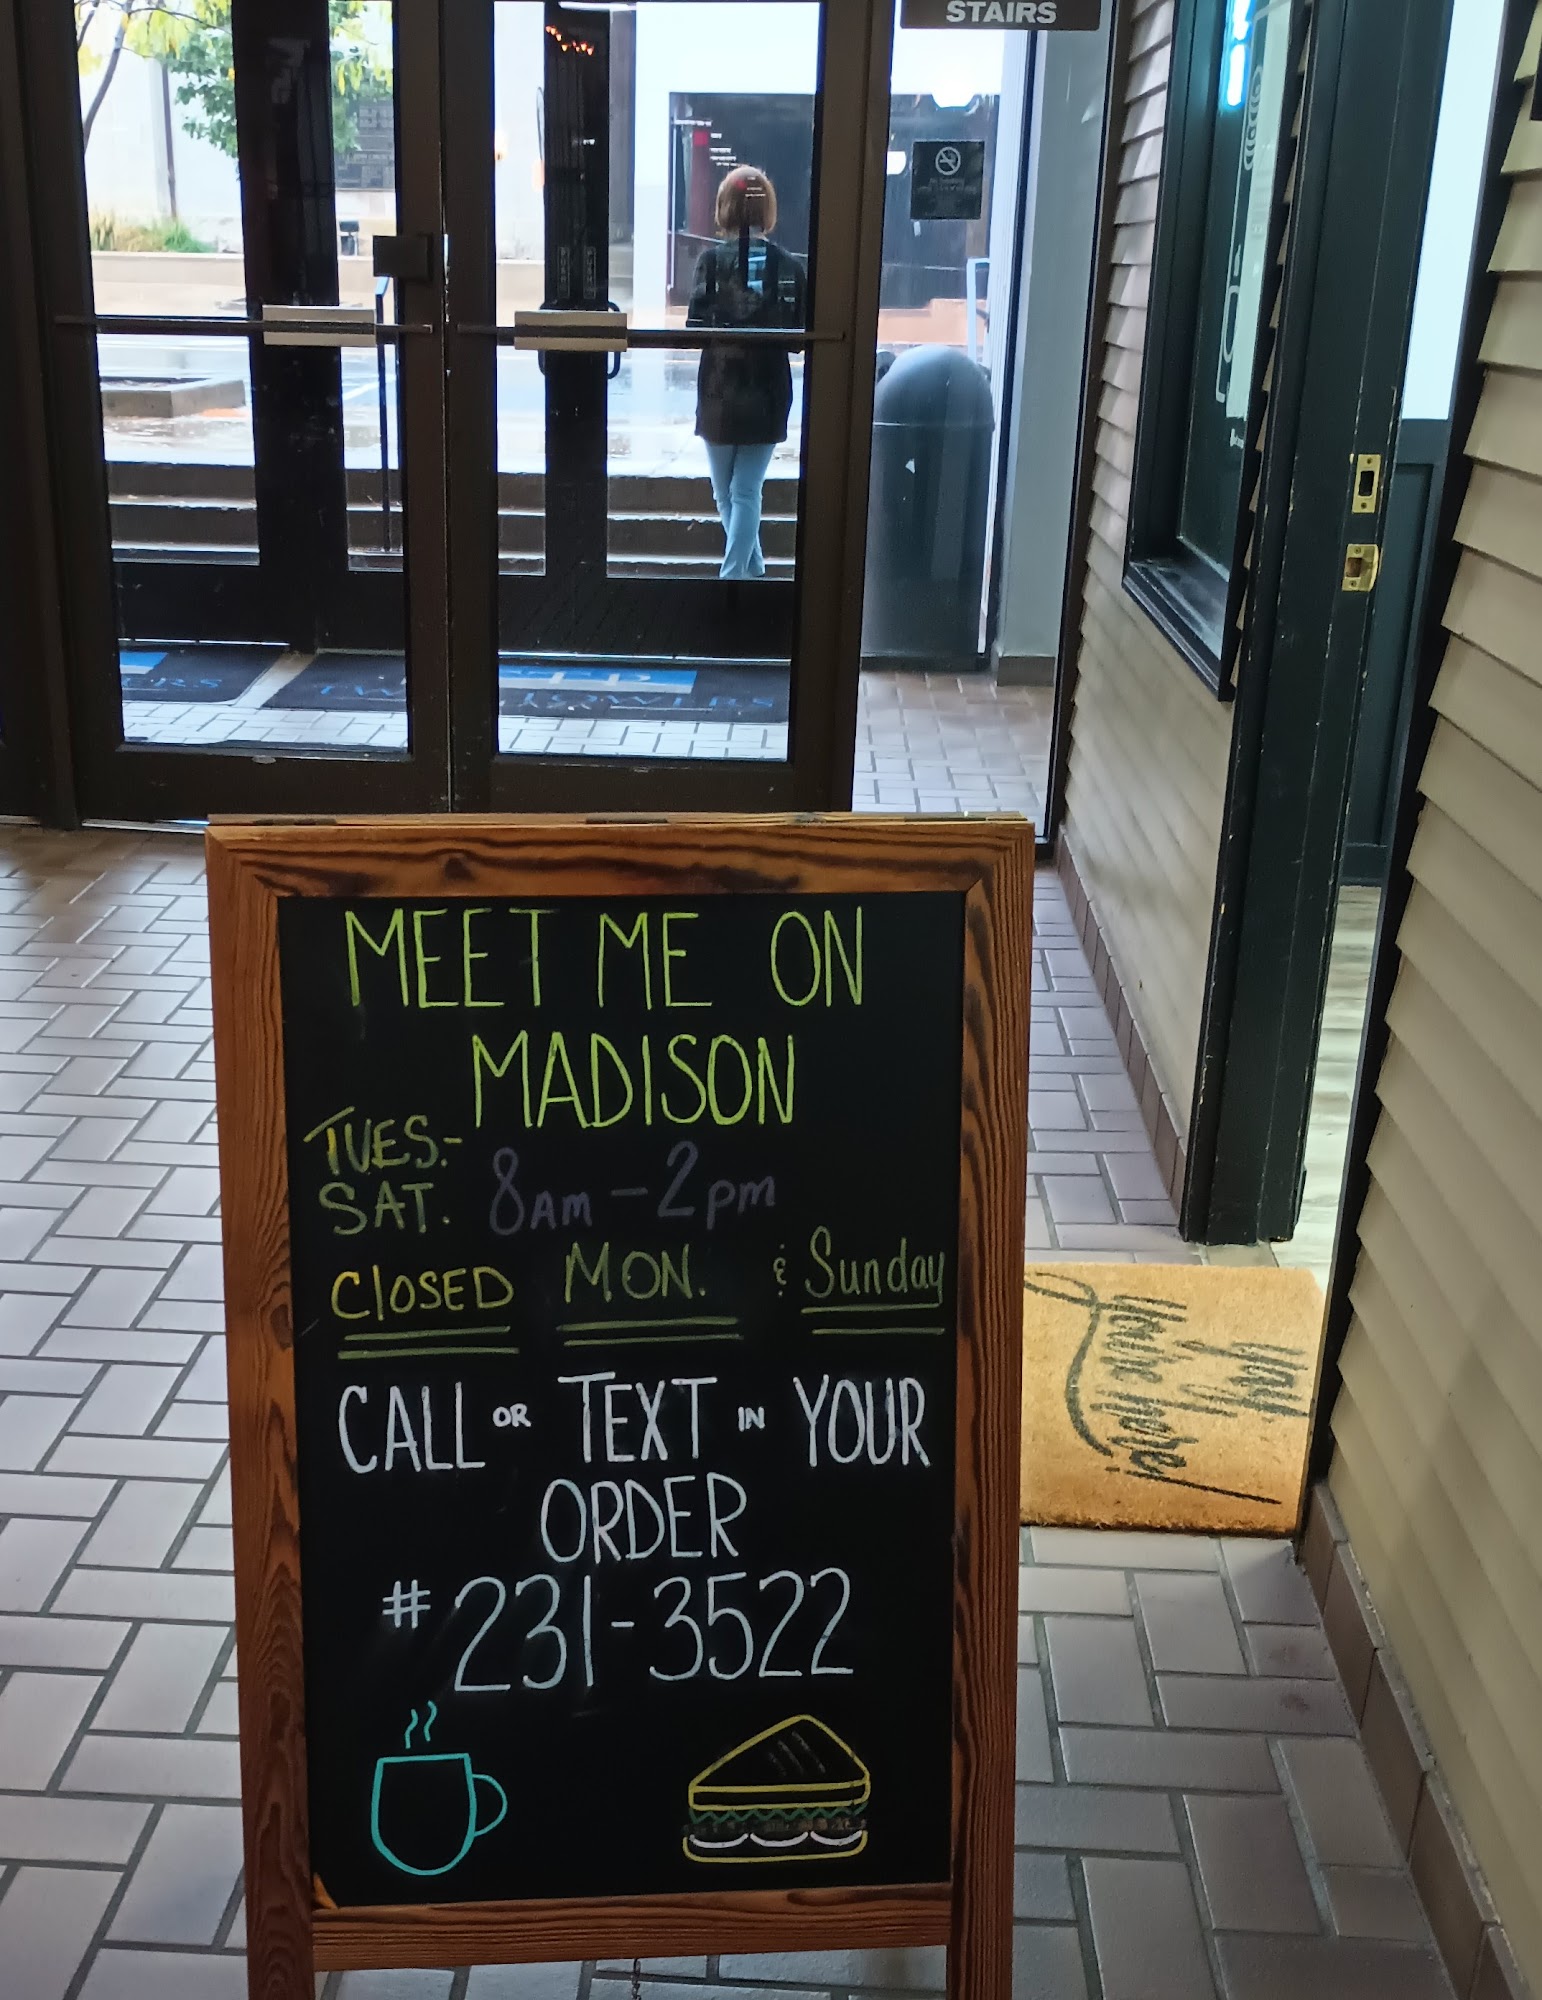 STAIRS
MEET ME ON
MADISON
TUES.-
SAT. 8AM-2pm
CLOSED MON. & Sunday
CALL OR TEXT IN YOUR
ORDER
#231-3522
Yay!
You're here!
TOWERS